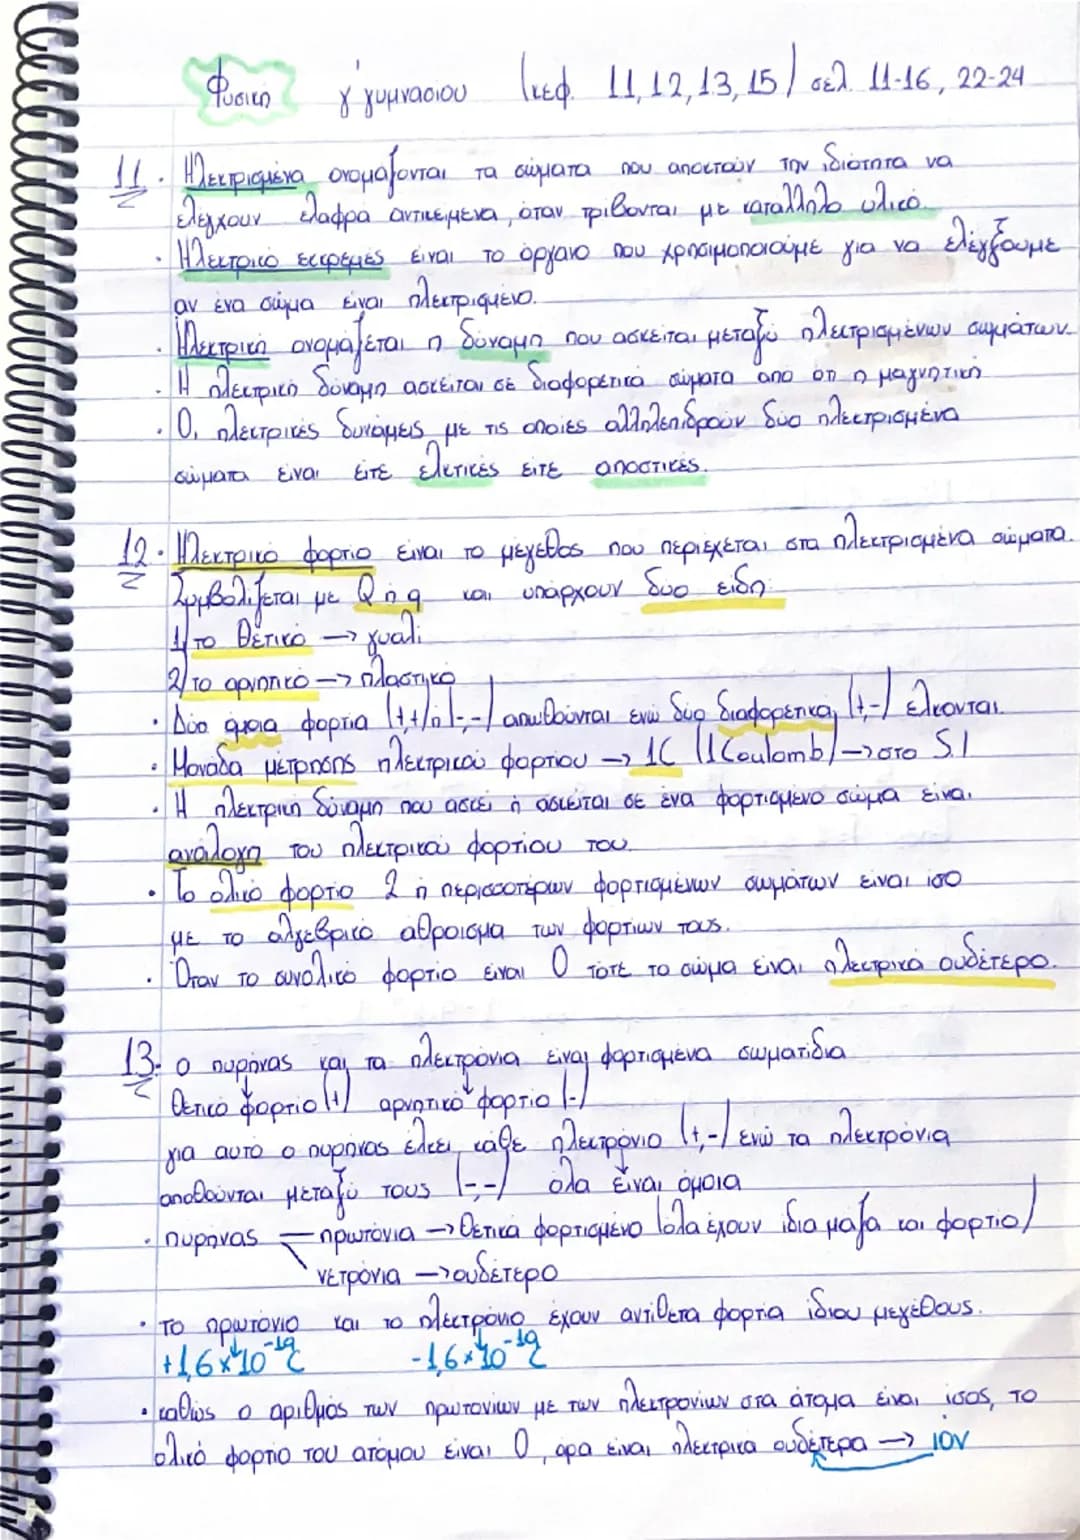 Φυσικη γ' γυμνασιου (κεφ. 11, 12, 13, 15) σελ. 11-16, 22-24
11. Ηλεκτρισμένα ονομάζονται τα σώματα που αποκτούν την ιδιότητα να
έλεγχουν ελαφρά αντικείμενα, όταν τρίβονται με κατάλληλο υλικό.
· Ηλεκτρικό εκκρεμές είναι το όργανο που χρησιμοποιούμε για να ελέγξουμε
αν ένα σώμα είναι ηλεκτρισμένο.
· Ηλεκτρική ονομάζεται η δύναμη που ασκείται μεταξύ ηλεκτρισμένων σωμάτων.
· Η ηλεκτρική δύναμη ασκείται σε διαφορετικά σώματα από ότι η μαγνητική
· Οι ηλεκτρικές δυνάμεις με τις οποίες αλληλεπιδρούν δύο ηλεκτρισμένα
σώματα είναι είτε ελκτικές είτε αποστικές.
12. Ηλεκτρικό φορτίο είναι το μέγεθος που περιέχεται στα ηλεκτρισμένα σώματα.
Συμβολίζεται με Q ή q και υπάρχουν δύο είδη:
1) το θετικό → γυαλί
2) το αρνητικό → πλαστικό
· Δύο όμοια φορτία (+,+) ή (-,-) απωθούνται ενώ δύο διαφορετικά (+,-) έλκονται.
· Μονάδα μέτρησης ηλεκτρικού φορτίου → 1C (1 Coulomb) → στο S.I
· Η ηλεκτρική δύναμη που ασκεί ή ασκείται σε ένα φορτισμένο σώμα είναι
ανάλογη του ηλεκτρικού φορτίου του.
· Το ολικό φορτίο 2 ή περισσοτέρων φορτισμένων σωμάτων είναι ισο
με το αλγεβρικό αθροισμα των φορτίων τους.
· Όταν το συνολικό φορτίο είναι 0 τότε το σώμα είναι ηλεκτρικά ουδέτερο.
13. ο πυρήνας και τα ηλεκτρόνια είναι φορτισμένα σωματίδια
θετικό φορτίο (+) αρνητικό φορτίο (-)
για αυτό ο πυρήνας έλκει κάθε ηλεκτρόνιο (+,-) ενώ τα ηλεκτρόνια
αποθούνται μεταξύ τους (-,-) όλα είναι όμοια
· πυρήνας πρωτόνια → θετικά φορτισμένο (όλα έχουν ίδια μάζα και φορτίο)
νετρόνια → ουδέτερο
· το πρωτόνιο και το ηλεκτρόνιο έχουν αντίθετα φορτία ίδιου μεγέθους.
+1,6×10⁻¹⁹C -1,6×10⁻¹⁹C
· καθώς ο αριθμός των πρωτονίων με των ηλεκτρονίων στα άτομα είναι ίσος, το
ολικό φορτίο του ατόμου είναι 0, άρα είναι ηλεκτρικά ουδέτερα → ιον